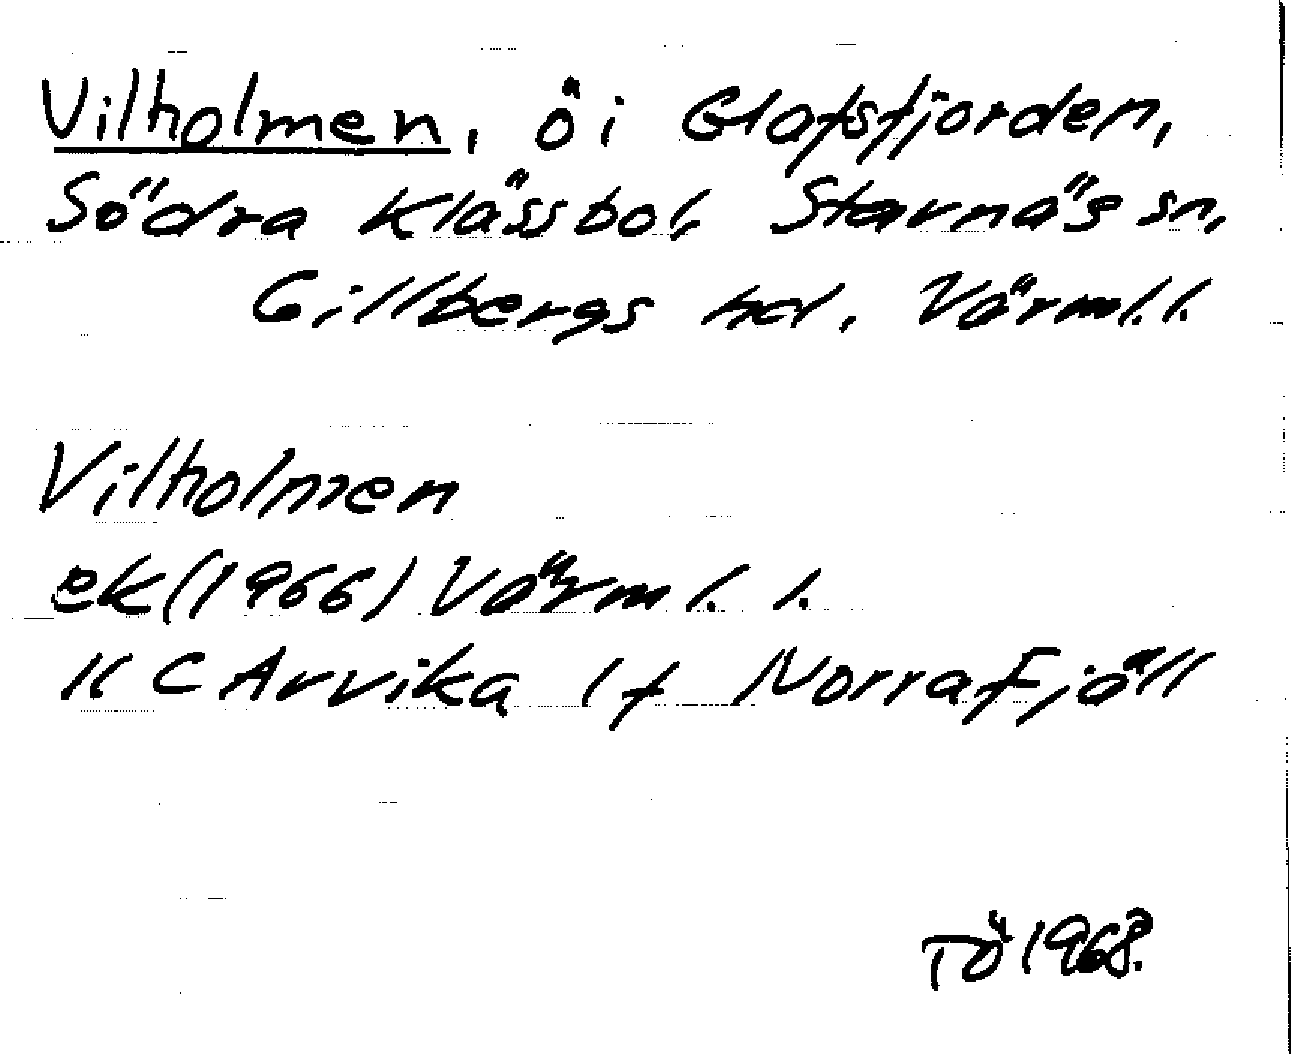 Vilholmen, ö i Glafsfjorden,
Södra Klässbol, Stavnäs sn,
Gillbergs hd, Värml. l.
Vilholmen
ek (1966) Värml. l.
11 C Arvika 1 f Norra Fjöll
TÖ 1968.